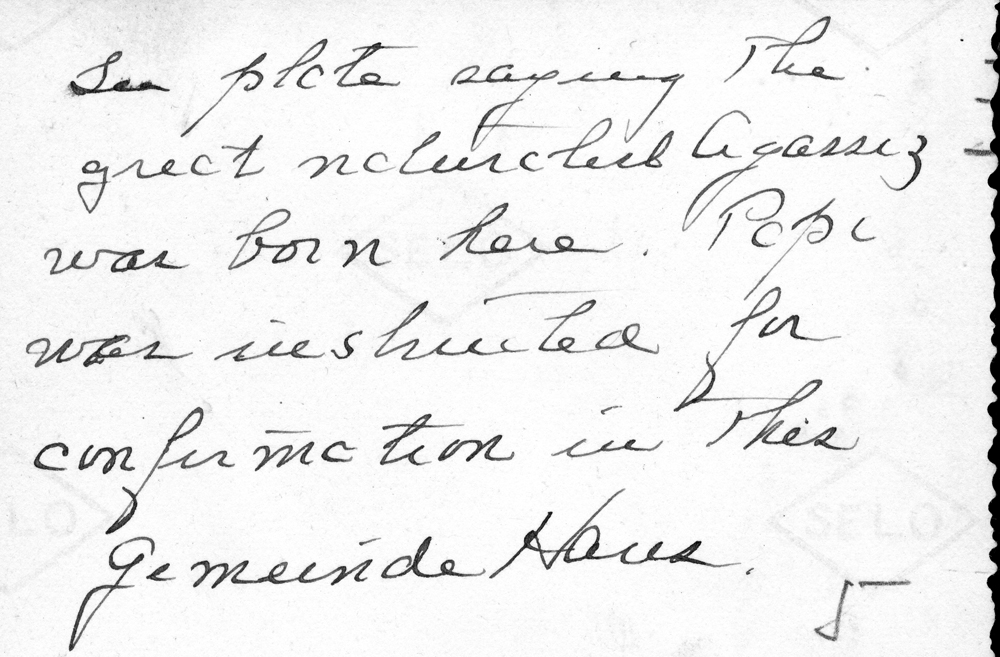 See plate saying the
great naturalist Agassiz
was born here. Papi
was instructed for
confirmation in this
Gemeinde Haus.
5
SELO
SELO